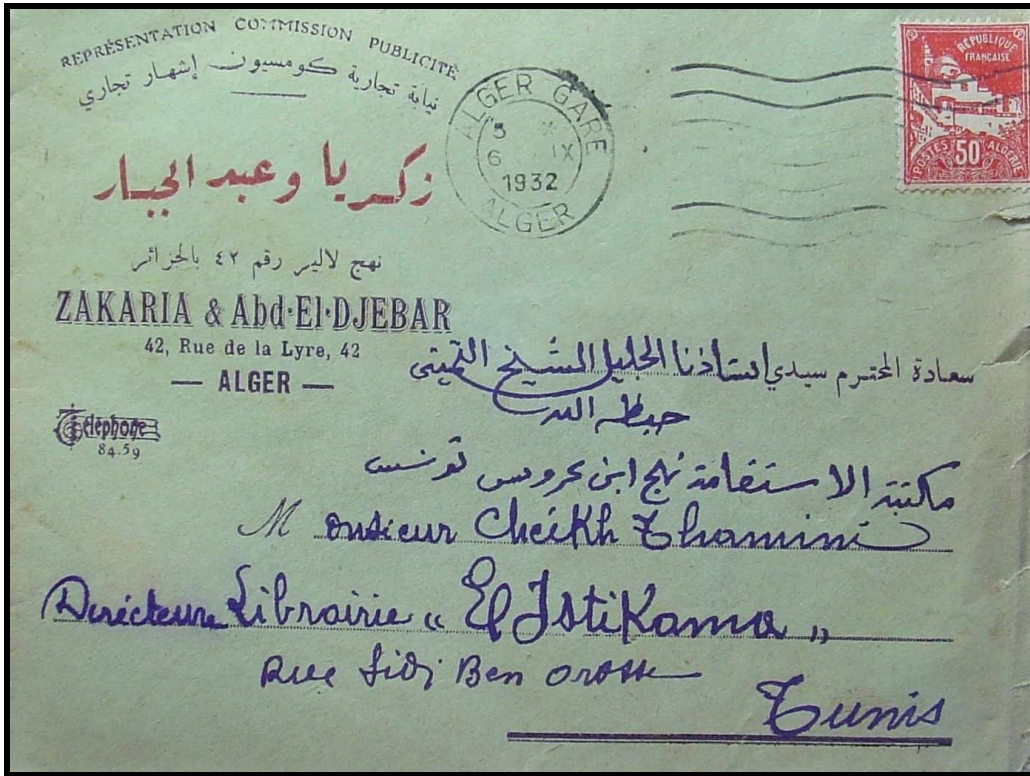 REPRÉSENTATION COMMISSION PUBLICITÉ
نيابة تجارية كومسيون إشهار تجاري
زكريا وعبد الجبار
نهج لالير رقم ٤٢ بالجزائر
ZAKARIA & Abd-El-DJEBAR
42, Rue de la Lyre, 42
— ALGER —
Téléphone
84.59
ALGER GARE
6 IX
1932
ALGER
RÉPUBLIQUE
FRANÇAISE
POSTES 50 ALGÉRIE
سعادة المحترم سيدي استاذنا الجليل الشيخ الثميني
حفظه الله
مكتبة الاستقامة نهج ابن عروس تونس
Monsieur Cheikh Thamini
Dirécteure Librairie " El Istikama "
Rue Sidi Ben orosse
Tunis